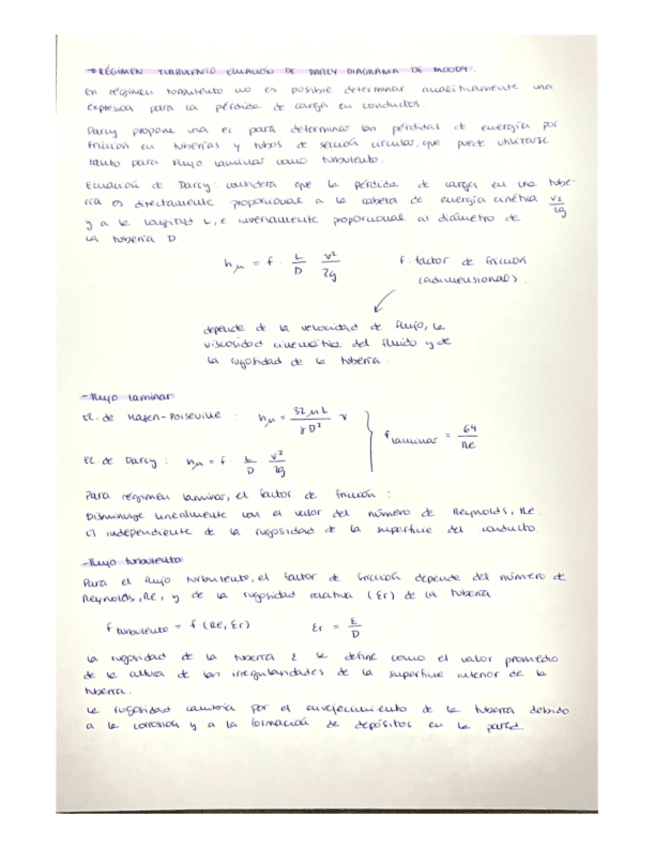 → RÉGIMEN TURBULENTO ECUACIÓN DE DARCY DIAGRAMA DE MOODY.
En régimen turbulento no es posible determinar analíticamente una
expresión para la pérdida de carga en conductos.
Darcy propone una ec. para determinar las pérdidas de energía por
fricción en tuberías y tubos de sección circular, que puede utilizarse
tanto para flujo laminar como turbulento.
Ecuación de Darcy: considera que la pérdida de carga en una tube-
ría es directamente proporcional a la cabeza de energía cinética v2/2g
y a la longitud L, e inversamente proporcional al diámetro de
la tubería D.
hμ = f · L/D · v²/2g f: factor de fricción
(adimensional).
depende de la velocidad de flujo, la
viscosidad cinemática del fluido y de
la rugosidad de la tubería.
- Flujo laminar
Ec. de Hagen-Poiseville : hμ = 32μL/γD² v
f laminar = 64/Re
Ec de Darcy : hμ = f · L/D · v²/2g
Para régimen laminar, el factor de fricción :
Disminuye linealmente con el valor del número de Reynolds, Re.
Es independiente de la rugosidad de la superficie del conducto.
- Flujo turbulento
Para el flujo turbulento, el factor de fricción depende del número de
Reynolds, Re, y de la rugosidad relativa (Er) de la tubería.
f turbulento = f (Re, Er) Er = ε/D
La rugosidad de la tubería ε se define como el valor promedio
de la altura de las irregularidades de la superficie interior de la
tubería.
La rugosidad cambia por el envejecimiento de la tubería debido
a la corrosión y a la formación de depósitos en la pared.